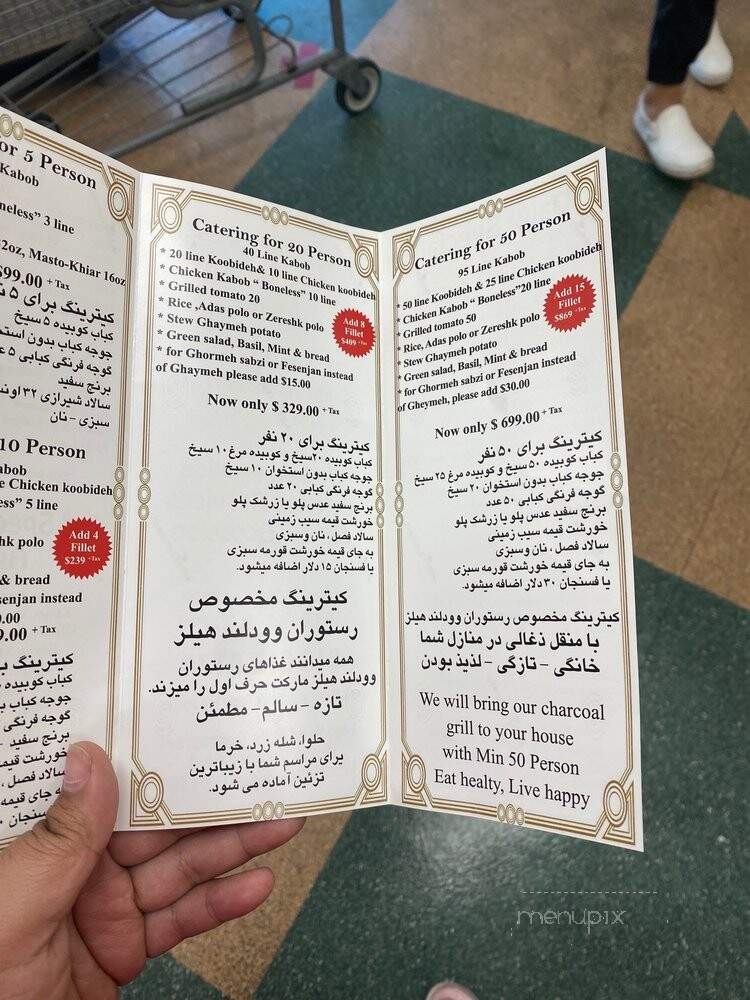 or 5 Person
Kabob
neless" 3 line
2oz, Masto-Khiar 16oz
$99.00 + Tax
کیترینگ برای ۵
کباب کوبیده ۵ سیخ
جوجه کباب بدون استخوا
گوجه فرنگی کبابی ۵
برنج سفید
سالاد شیرازی ۳۲ اونس
سبزی - نان
10 Person
abob
e Chicken koobideh
ess" 5 line
Add 4
Fillet
$239 +Tax
shk polo
& bread
senjan instead
0.00
9.00 + Tax
کیترینگ ب
کباب کوبیده
جوجه کباب ب
گوجه فرنگی
برنج سفید
خورشت قیمه
سالاد فصل ،
به جای قیمه
Catering for 20 Person
40 Line Kabob
* 20 line Koobideh& 10 line Chicken koobideh
* Chicken Kabob " Boneless" 10 line
* Grilled tomato 20
* Rice ,Adas polo or Zereshk polo
* Stew Ghaymeh potato
* Green salad, Basil, Mint & bread
* for Ghormeh sabzi or Fesenjan instead
of Ghaymeh please add $15.00
Add 8
Fillet
$409 +Tax
Now only $ 329.00 + Tax
کیترینگ برای ۲۰ نفر
کباب کوبیده ۲۰سیخ و کوبیده مرغ ۱۰ سیخ
جوجه کباب بدون استخوان ۱۰ سیخ
گوجه فرنگی کبابی ۲۰ عدد
برنج سفید عدس پلو یا زرشک پلو
خورشت قیمه سیب زمینی
سالاد فصل ، نان وسبزی
به جای قیمه خورشت قورمه سبزی
یا فسنجان ۱۵ دلار اضافه میشود.
کیترینگ مخصوص
رستوران وودلند هیلز
همه میدانند غذاهای رستوران
وودلند هیلز مارکت حرف اول را میزند.
تازه - سالم - مطمئن
حلوا، شله زرد، خرما
برای مراسم شما با زیباترین
تزئین آماده می شود.
Catering for 50 Person
95 Line Kabob
* 50 line Koobideh & 25 line Chicken koobideh
* Chicken Kabob " Boneless"20 line
* Grilled tomato 50
* Rice, Adas polo or Zereshk polo
* Stew Ghaymeh potato
* Green salad, Basil, Mint & bread
* for Ghormeh sabzi or Fesenjan instead
of Gheymeh, please add $30.00
Add 15
Fillet
$869 +Tax
Now only $ 699.00 + Tax
کیترینگ برای ۵۰ نفر
کباب کوبیده ۵۰ سیخ و کوبیده مرغ ۲۵ سیخ
جوجه کباب بدون استخوان ۲۰ سیخ
گوجه فرنگی کبابی ۵۰ عدد
برنج سفید عدس پلو یا زرشک پلو
خورشت قیمه سیب زمینی
سالاد فصل ، نان وسبزی
به جای قیمه خورشت قورمه سبزی
یا فسنجان ۳۰ دلار اضافه میشود.
کیترینگ مخصوص رستوران وودلند هیلز
با منقل ذغالی در منازل شما
خانگی - تازگی - لذیذ بودن
We will bring our charcoal
grill to your house
with Min 50 Person
Eat healty, Live happy
menupix